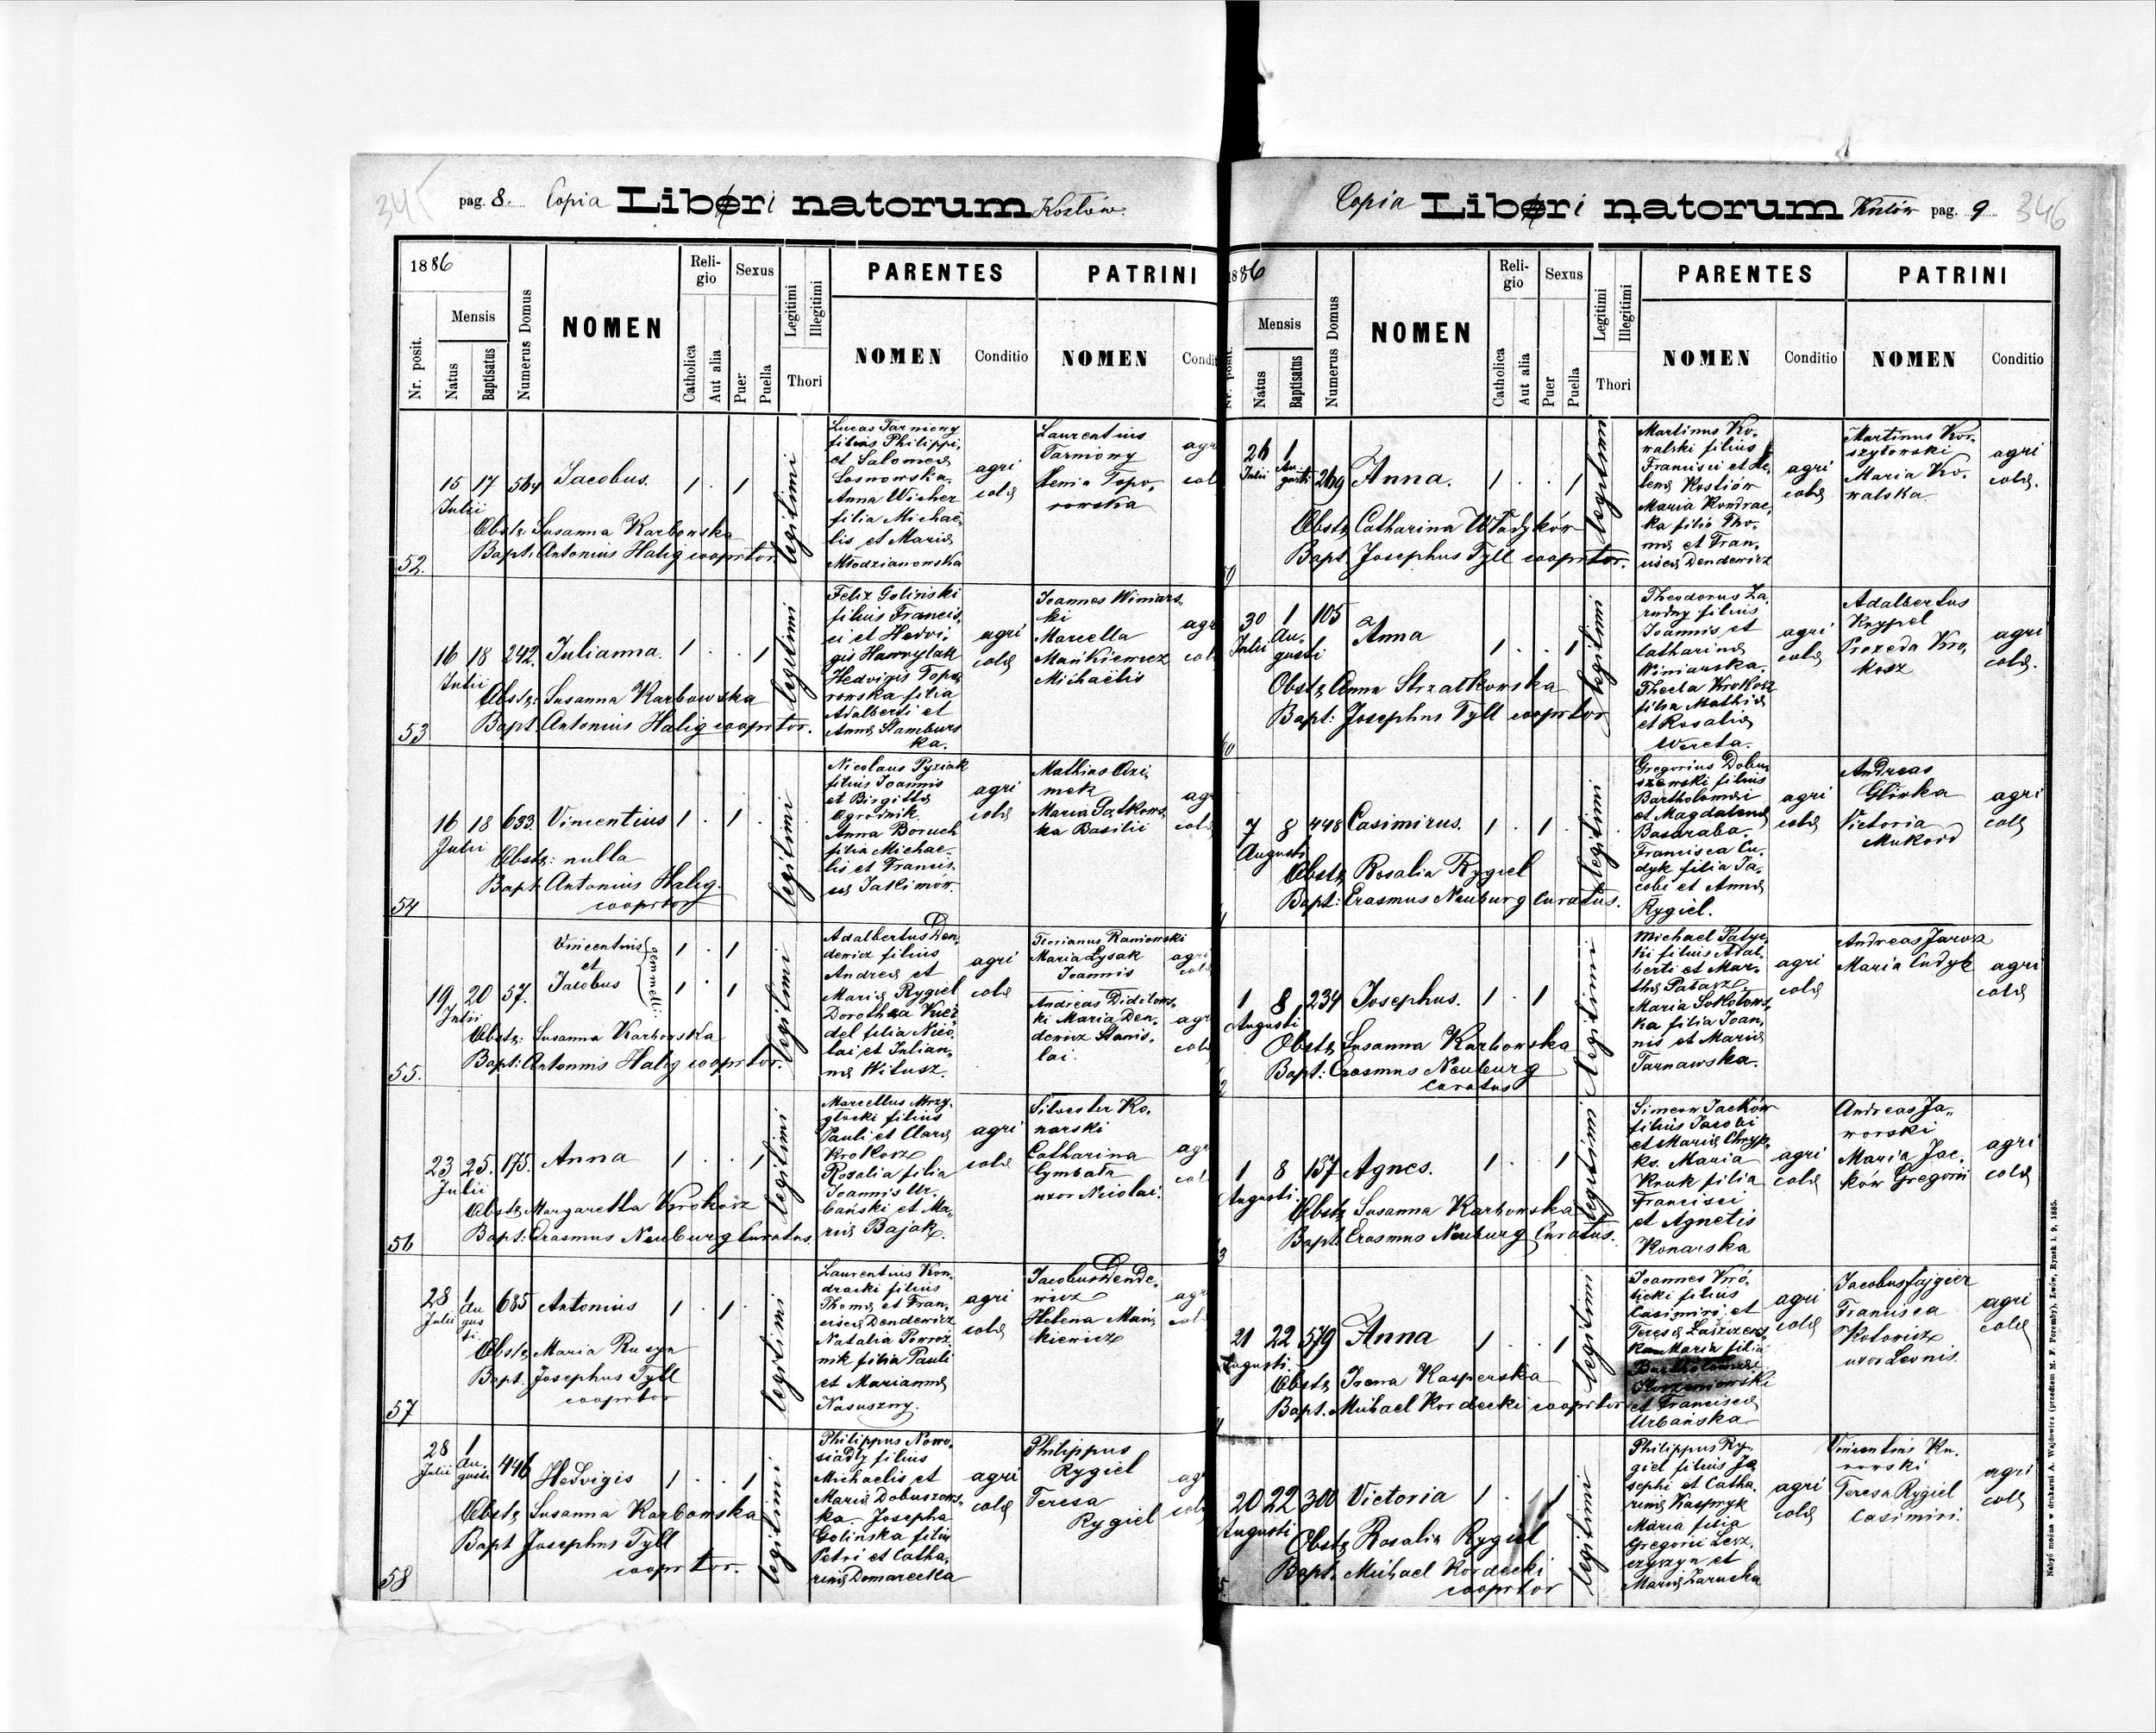 345
pag. 8. Copia Liberi natorum Kozłów.
1886
Nr. posit.
Mensis
Natus
Baptisatus
Numerus Domus
NOMEN
Religio
Catholica
Aut alia
Sexus
Puer
Puella
Legitimi
Illegitimi
Thori
PARENTES
NOMEN
Conditio
PATRINI
NOMEN
Condi
52.
15 17 564 Jacobus. 1 . 1
Julii
Obstr: Susanna Karbowska
Bapt: Antonius Halig cooprtor.
legitimi
Lucas Tarmony
filius Philippi,
et Salomeæ
Sosnowska.
Anna Wicher
filia Michaë
lis et Mariæ
Młodzianowska
agri
colæ
Laurentius
Tarmony
Xenia Topo,
rowska
agr
col
53
16 18 242. Julianna. 1 . . 1
Julii
Obstr: Susanna Karbowska
Bapt: Antonius Halig cooprtor.
legitimi
Felix Goliński
filius Francis,
ci et Hedvi,
gis Hawrylak
Hedvigis Topo
rowska filia
Adalberti et
Annæ Stamburs
ka.
agri
colæ
Joannes Winiars,
ki
Marcella
Mańkiewicz
Michaëlis
agr
col
54
16 18 633. Vincentius 1 . 1 .
Julii
Obstr: nulla
Bapt: Antonius Halig.
cooprtor
legitimi
Nicolaus Pyziak
filius Joannis
et Birgittæ
Ogrodnik.
Anna Boruch
filia Michae,
lis et Francis,
cæ Jaklimów.
agri
colæ
Mathias Ozi,
mek
Maria Gatkows
ka Basilii
agr
col
55.
19 20 57. Vincentius
et
Jacobus
gemmelli
1 . 1
1 . 1
Julii
Obstr: Susanna Karbowska
Bapt: Antonius Halig cooprtor.
legitimi
Adalbertus Den,
dewicz filius
Andreæ et
Mariæ Rygiel
Dorothea Knez
del filia Nico,
lai et Julian,
næ Witusz.
agri
colæ
Florianus Raniowski
Maria Lysak
Joannis
agri
col
Andreas Diditows,
ki Maria Den,
dewicz Stanis,
lai.
agr
col
56
23 25. 175. Anna 1 . . 1
Julii
Obstr: Margaretha Krokosz
Bapt: Erasmus Neuburg Curatus.
legitimi
Marcellus Mrzy,
głocki filius
Pauli et Claræ
Krokosz
Rosalia filia
Joannis Ur,
bański et Ma,
riæ Bajak.
agri
colæ
Silvester Ko,
narski
Catharina
Cymbała
uxor Nicolai.
agr
col
57
28 1 685 Antonius 1 . 1 .
Julii Au
gus
ti
Obstr: Maria Rusyn
Bapt. Josephus Tyll
cooprtor
legitimi
Laurentius Kon,
dracki filius
Thomæ et Fran,
ciscæ Dendewicz
Natalia Powroź
nik filia Pauli
et Mariannæ
Nasuszny.
agri
colæ
Jacobus Dende,
wicz
Helena Mań,
kiewicz
agr
col
58
28 1 446 Hedvigis 1 . . 1
Julii Au,
gusti
Obstr: Susanna Karbowska
Bapt Josephus Tyll
cooprtor.
legitimi
Philippus Nowo,
siadły filius
Michaelis et
Mariæ Dobuszows,
ka. Josepha
Golinska filia
Petri et Catha,
rinæ Domarecka
agri
colæ
Philippus
Rygiel
Teresa
Rygiel
agr
col
Copia Liberi natorum Kozłów pag. 9 346
1886
Nr. posit.
Mensis
Natus
Baptisatus
Numerus Domus
NOMEN
Religio
Catholica
Aut alia
Sexus
Puer
Puella
Legitimi
Illegitimi
Thori
PARENTES
NOMEN
Conditio
PATRINI
NOMEN
Conditio
26 1 269 Anna. 1 . . 1
Julii Au
gusti
Obstr: Catharina Władyków
Bapt. Josephus Tyll cooprtor.
legitimi
Martinus Ko,
walski filius
Francisci et He,
lenæ Kostiów
Maria Kondrac,
ka filia Tho,
mæ et Fran,
ciscæ Dendewicz
agri
colæ
Martinus Kor,
szyłowski
Maria Ko,
walska
agri
colæ.
30 1 105 Anna 1 . . 1
Julii Au,
gusti
Obstr: Anna Strzałkowska
Bapt: Josephus Tyll cooprtor
legitimi
Theodorus Za,
rudny filius
Joannis et
Catharinæ
Winiarska.
Thecla Krokosz
filia Mathiæ
et Rosaliæ
Wereta.
agri
colæ
Adalbertus
Knypel
Praxeda Kro,
kosz
agri
colæ.
7 8 448 Casimirus. 1 . 1 .
Augusti
Obstr: Rosalia Rygiel
Bapt: Erasmus Neuburg Curatus.
legitimi
Gregorius Dobu,
szowski filius
Bartholomæi
et Magdalenæ
Basaraba.
Francisca Cu,
dyk filia Ja,
cobi et Annæ
Rygiel.
agri
colæ
Andreas
Główka
Victoria
agri
colæ
1 8 234 Josephus. 1 . 1
Augusti
Obstr: Susanna Karbowska
Bapt: Erasmus Neuburg
Curatus
legitimi
Michael Patyc,
ki filius Adal,
berti et Mar,
thæ Patarz
Maria Sokołows,
ka filia Joan,
nis et Mariæ
Tarnawska.
agri
colæ
Andreas Jarosz
Maria Cudyk
agri
colæ
1 8 157 Agnes. 1 . . 1
Augusti.
Obstr: Susanna Karbowska
Bapt: Erasmus Neuburg Curatus.
legitimi
Simeon Jacków
filius Jacobi
et Mariæ Chryp,
ko. Maria
Kruk filia
Francisci
et Agnetis
Konarska
agri
colæ
Andreas Ja,
worski
Maria Jac,
ków Gregorii
agri
colæ
21 22 579 Anna 1 . . 1
Augusti.
Obstr: Irena Kasperska
Bapt. Michael Kordecki cooprtor
legitimi
Joannes Kró,
licki filius
Casimiri et
Teresæ Łaszczews,
ka Maria filia
Bartholomæi
Korzeniowski
et Franciscæ
Urbańska
agri
colæ
Jacobus Fajgier
Francisca
Kotowicz
uxor Leonis.
agri
colæ
20 22 300 Victoria 1 . . 1
Augusti
Obstr: Rosalia Rygiel
Bapt: Michael Kordecki
cooprtor
legitimi
Philippus Ry,
giel filius Jo
sephi et Catha,
rinæ Kaspryk
Maria filia
Gregorii Lesz,
czyszyn et
Mariæ Zarucka
agri
colæ
Vincentius Ku,
rowski
Teresa Rygiel
Casimiri.
agri
colæ
Nabyć można w drukarni A. Wajdowicza (przedtem M. F. Poremby), Lwów, Rynek l. 9, 1885.